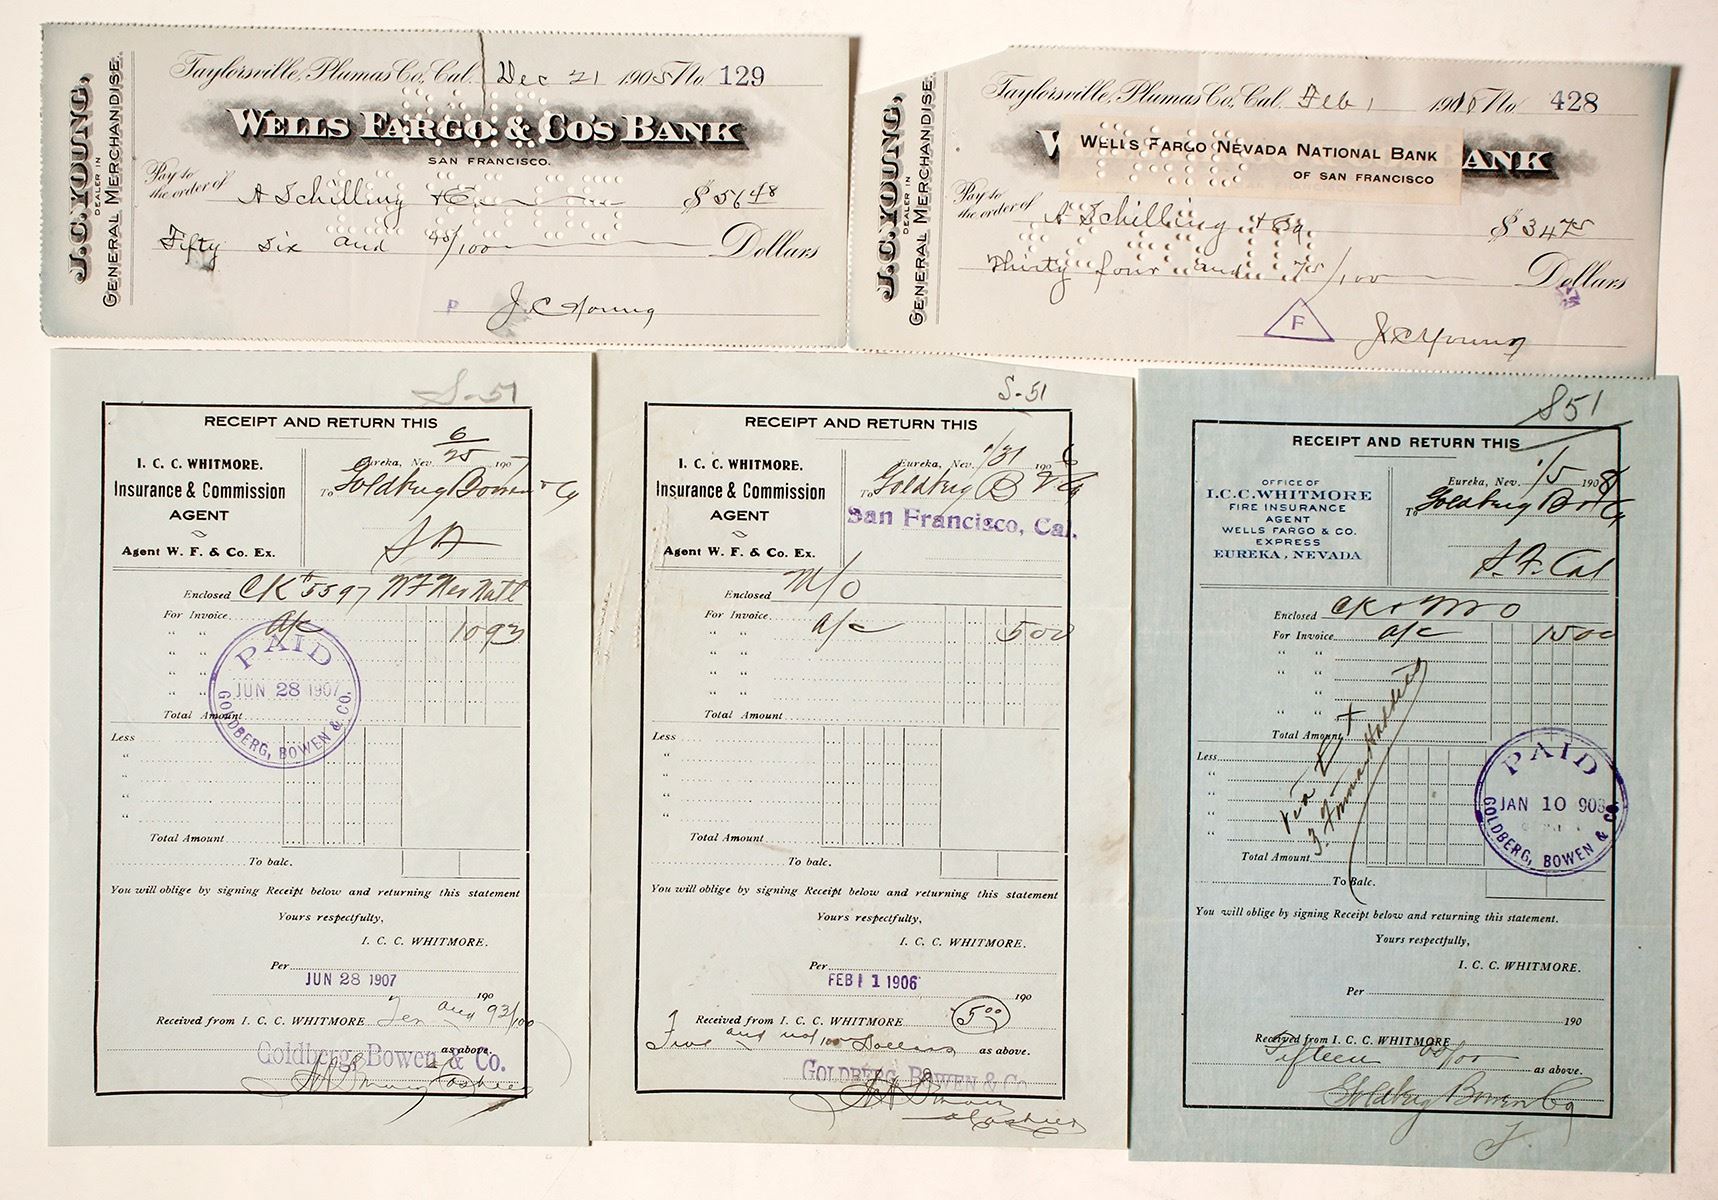 J. C. YOUNG,
DEALER IN
GENERAL MERCHANDISE.
Taylorsville, Plumas Co., Cal. Dec 21 1905 No. 129
WELLS FARGO & CO'S BANK
SAN FRANCISCO.
Pay to
the order of A Schilling & Co $56 48
Fifty six and 48/100 Dollars
F
J. C. Young
J. C. YOUNG,
DEALER IN
GENERAL MERCHANDISE.
Taylorsville, Plumas Co., Cal. Feb 1 1910 No. 428
WELLS FARGO NEVADA NATIONAL BANK
OF SAN FRANCISCO
ANK
Pay to
the order of A Schilling & Co. $34 75
Thirty four and 75/100 Dollars
F
J. C. Young
S-51
RECEIPT AND RETURN THIS
I. C. C. WHITMORE.
Insurance & Commission
AGENT
Agent W. F. & Co. Ex.
Eureka, Nev. 6/25 1907
To Goldberg Bowen & Co
S F
Enclosed CK # 5597 W F Nev Natl
For Invoice a/c 10 93
" "
" "
" "
" "
Total Amount
PAID
JUN 28 1907
GOLDBERG, BOWEN & CO.
Less
"
"
"
"
Total Amount
To balc.
You will oblige by signing Receipt below and returning this statement
Yours respectfully,
I. C. C. WHITMORE.
Per
JUN 28 1907
190
Received from I. C. C. WHITMORE Ten and 93/100
as above.
Goldberg, Bowen & Co.
Cashier
S-51
RECEIPT AND RETURN THIS
I. C. C. WHITMORE.
Insurance & Commission
AGENT
Agent W. F. & Co. Ex.
Eureka, Nev. 1/31 1906
To Goldberg B & Co
San Francisco, Cal.
Enclosed M/O
For Invoice a/c 5 00
" "
" "
" "
" "
Total Amount
Less
"
"
"
"
Total Amount
To balc.
You will oblige by signing Receipt below and returning this statement
Yours respectfully,
I. C. C. WHITMORE.
Per
FEB 1 1906
190
Received from I. C. C. WHITMORE 5 00
Five and no/100 Dollars as above.
GOLDBERG, BOWEN & Co.
Cashier
S51
RECEIPT AND RETURN THIS
OFFICE OF
I. C. C. WHITMORE
FIRE INSURANCE
AGENT
WELLS FARGO & CO.
EXPRESS
EUREKA, NEVADA
Eureka, Nev. 1/5 1908
To Goldberg B & Co
S. F. Cal
Enclosed CK & M O
For Invoice a/c 15 00
" "
" "
" "
" "
Total Amount
Less
"
"
"
"
Total Amount
To Balc.
PAID
JAN 10 908
GOLDBERG, BOWEN & CO.
You will oblige by signing Receipt below and returning this statement.
Yours respectfully,
I. C. C. WHITMORE.
Per
190
Received from I. C. C. WHITMORE
Fifteen 00/00
as above.
Goldberg Bowen Co